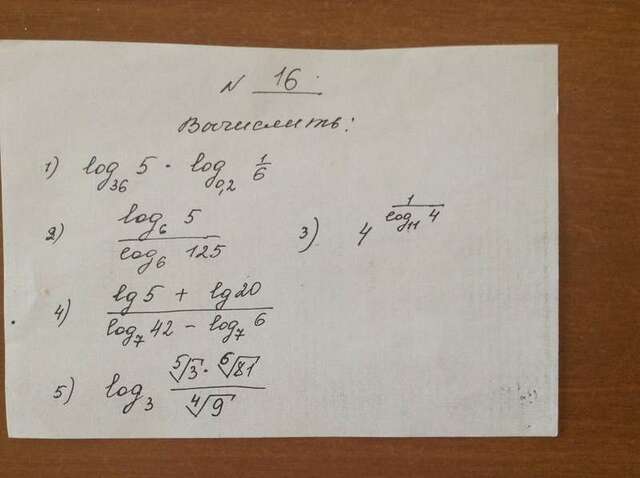 N 16.
Вычислить:
1) log₃₆ 5 · log₀,₂ 1/6
2) log₆ 5 / log₆ 125
3) 4^(1/log₁₁ 4)
4) (lg 5 + lg 20) / (log₇ 42 − log₇ 6)
5) log₃ (⁵√3 · ⁶√81) / ⁴√9